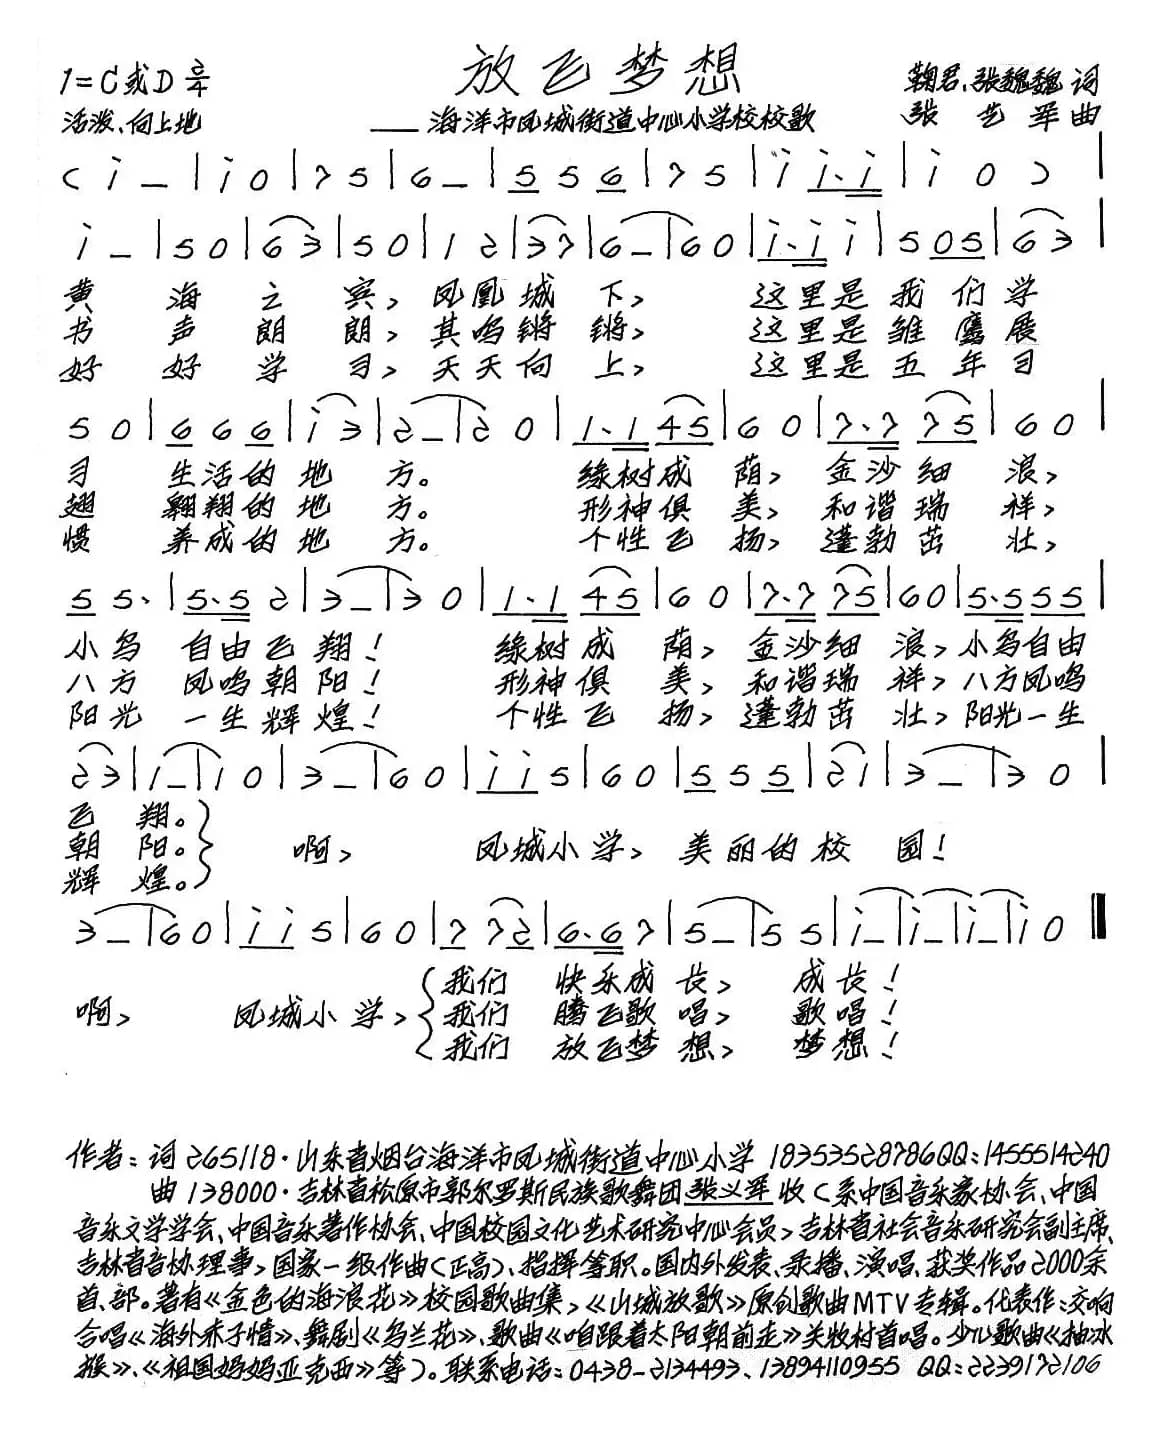 放飞梦想
1=C或D 2/4
鞠君、张魏魏 词
活泼、向上地
——海洋市凤城街道中心小学校校歌
张艺军 曲
( i – | i 0 | 7 5 | 6 – | 5 5 6 | 7 5 | i i. i | i 0 ) |
i – | 5 0 | 6 3 | 5 0 | 1 2 | 3 7 | 6 – | 6 0 | i. i i | 5 0 5 | 6 3 |
黄海之宾，凤凰城下，这里是我们学
书声朗朗，其鸣锵锵，这里是雏鹰展
好好学习，天天向上，这里是五年习
5 0 | 6 6 6 | i 3 | 2 – | 2 0 | 1. 1 4 5 | 6 0 | 7. 7 7 5 | 6 0 |
习生活的地方。缘树成荫，金沙细浪，
翅翱翔的地方。形神俱美，和谐瑞祥，
惯养成的地方。个性飞扬，蓬勃茁壮，
5 5. | 5. 5 2 | 3 – | 3 0 | 1. 1 4 5 | 6 0 | 7. 7 7 5 | 6 0 | 5. 5 5 5 |
小鸟自由飞翔！缘树成荫，金沙细浪，小鸟自由
八方凤鸣朝阳！形神俱美，和谐瑞祥，八方凤鸣
阳光一生辉煌！个性飞扬，蓬勃茁壮，阳光一生
2 3 | 1 – | 1 0 | 3 – | 6 0 | i i 5 | 6 0 | 5 5 5 | 2 1 | 3 – | 3 0 |
飞翔。
朝阳。 啊，凤城小学，美丽的校园！
辉煌。
3 – | 6 0 | i i 5 | 6 0 | 7 7 2 | 6. 6 7 | 5 – | 5 5 | i – | i – | i – | i 0 ‖
我们快乐成长，成长！
啊，凤城小学，我们腾飞歌唱，歌唱！
我们放飞梦想，梦想！
作者：词265118·山东省烟台海洋市凤城街道中心小学 18353528786QQ:1455514240
曲138000·吉林省松原市郭尔罗斯民族歌舞团张义军收（系中国音乐家协会、中国
音乐文学学会、中国音乐著作协会、中国校园文化艺术研究中心会员，吉林省社会音乐研究会副主席、
吉林省音协理事，国家一级作曲（正高）、指挥等职。国内外发表、录播、演唱、获奖作品2000余
首、部。著有《金色的海浪花》校园歌曲集，《山城放歌》原创歌曲MTV专辑。代表作：交响
合唱《海外赤子情》、舞剧《乌兰花》、歌曲《咱跟着太阳朝前走》关牧村首唱。少儿歌曲《抽冰
猴》、《祖国妈妈亚克西》等）。联系电话：0438-2134493、13894110955 QQ:2239172106